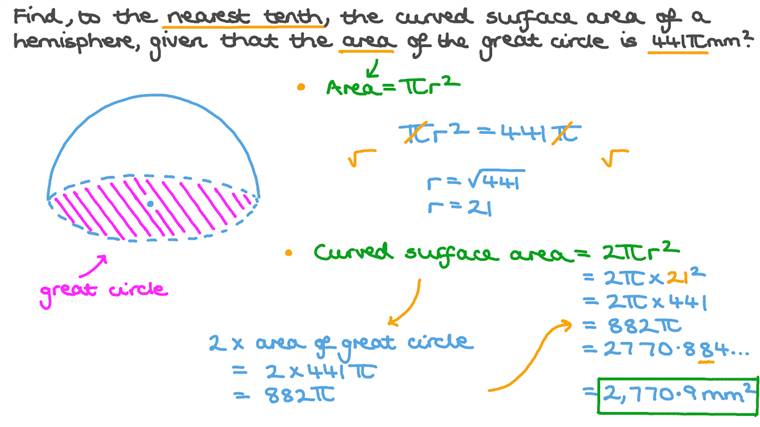 Find, to the nearest tenth, the curved surface area of a
hemisphere, given that the area of the great circle is 441πmm².
• Area = πr²
πr² = 441π
√ √
r = √441
r = 21
great circle
• Curved surface area = 2πr²
= 2π × 21²
= 2π × 441
= 882π
= 2770.884...
= 2,770.9mm²
2 × area of great circle
= 2 × 441π
= 882π